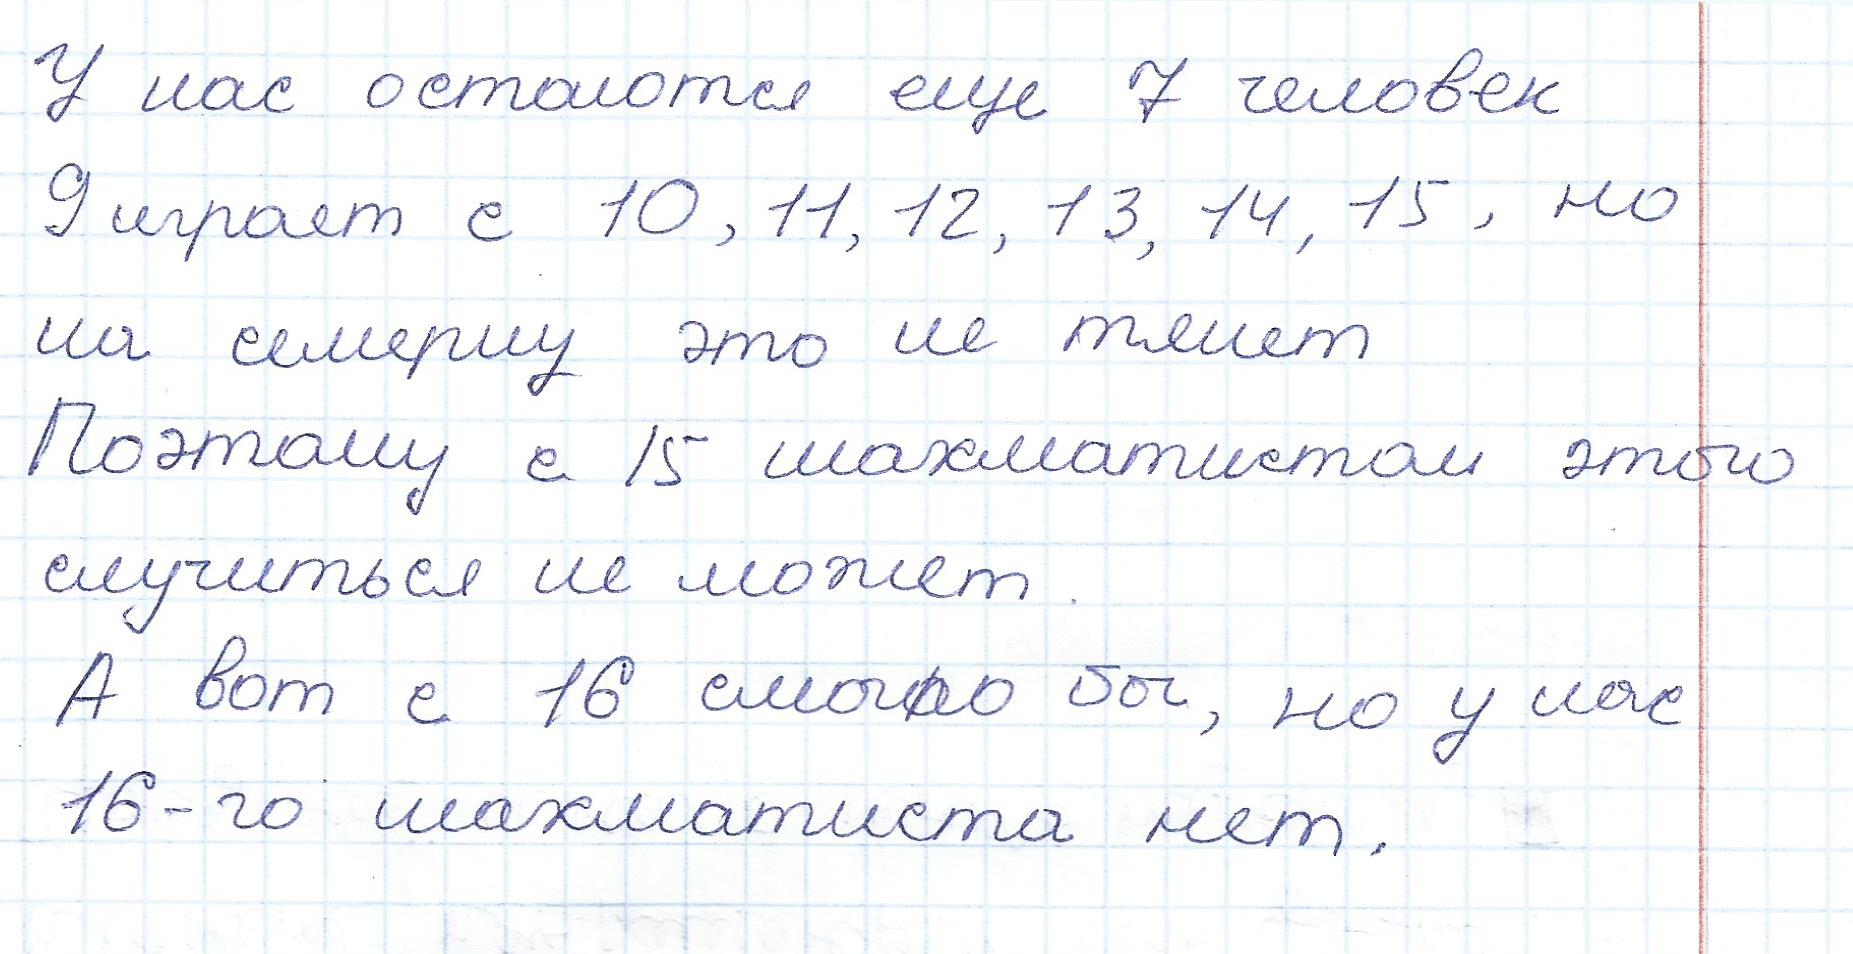 У нас остаются еще 7 человек
9 играет с 10, 11, 12, 13, 14, 15, но
на семерку это не тянет
Поэтому с 15 шахматистом этого
случиться не может.
А вот с 16 смогло бы, но у нас
16-го шахматиста нет.